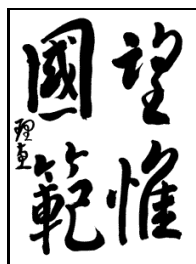 望惟
國範
理惠